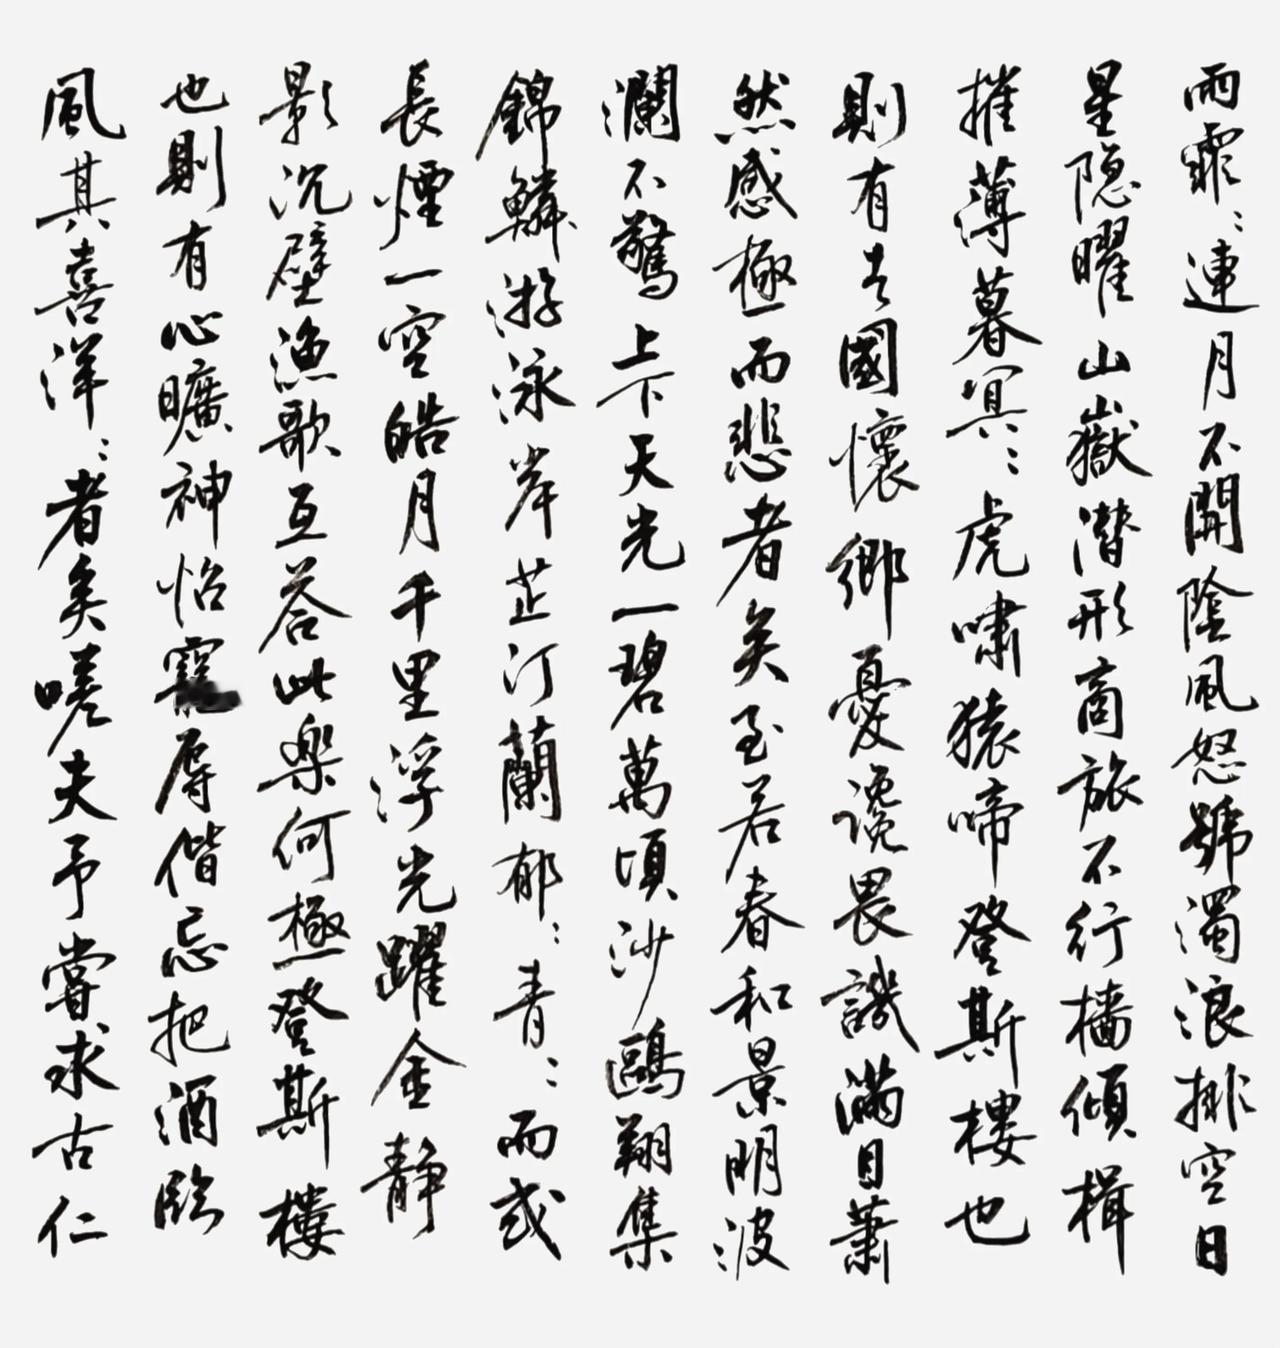 雨霏：連月不開陰風怒號濁浪排空日
星隐曜山嶽潜形商旅不行檣傾楫
摧薄暮冥：虎嘯猿啼登斯樓也
則有去國懷鄉憂讒畏譏滿目蕭
然感極而悲者矣至若春和景明波
瀾不驚上下天光一碧萬頃沙鷗翔集
錦鱗游泳岸芷汀蘭郁：青：而或
長煙一空皓月千里浮光躍金静
影沉壁漁歌互答此樂何極登斯樓
也則有心曠神怡寵辱偕忘把酒臨
風其喜洋：者矣嗟夫予嘗求古仁